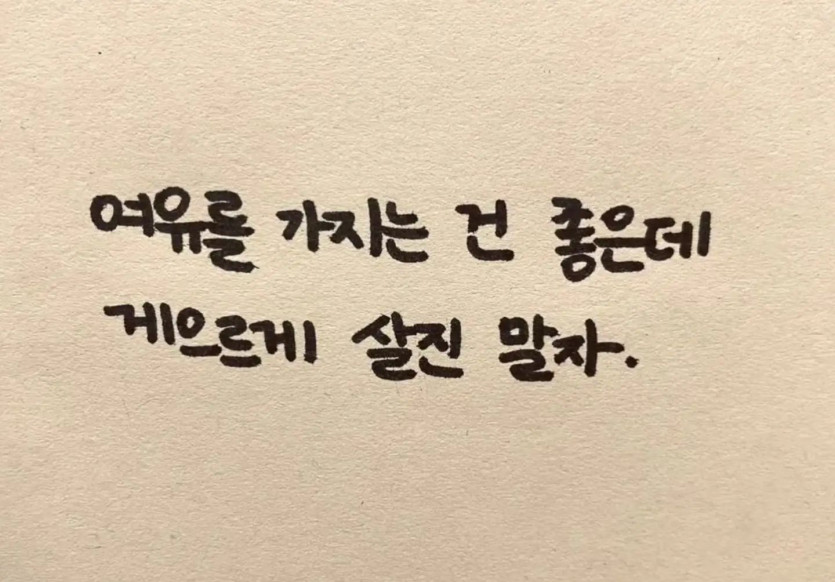 여유를 가지는 건 좋은데
게으르게 살진 말자.